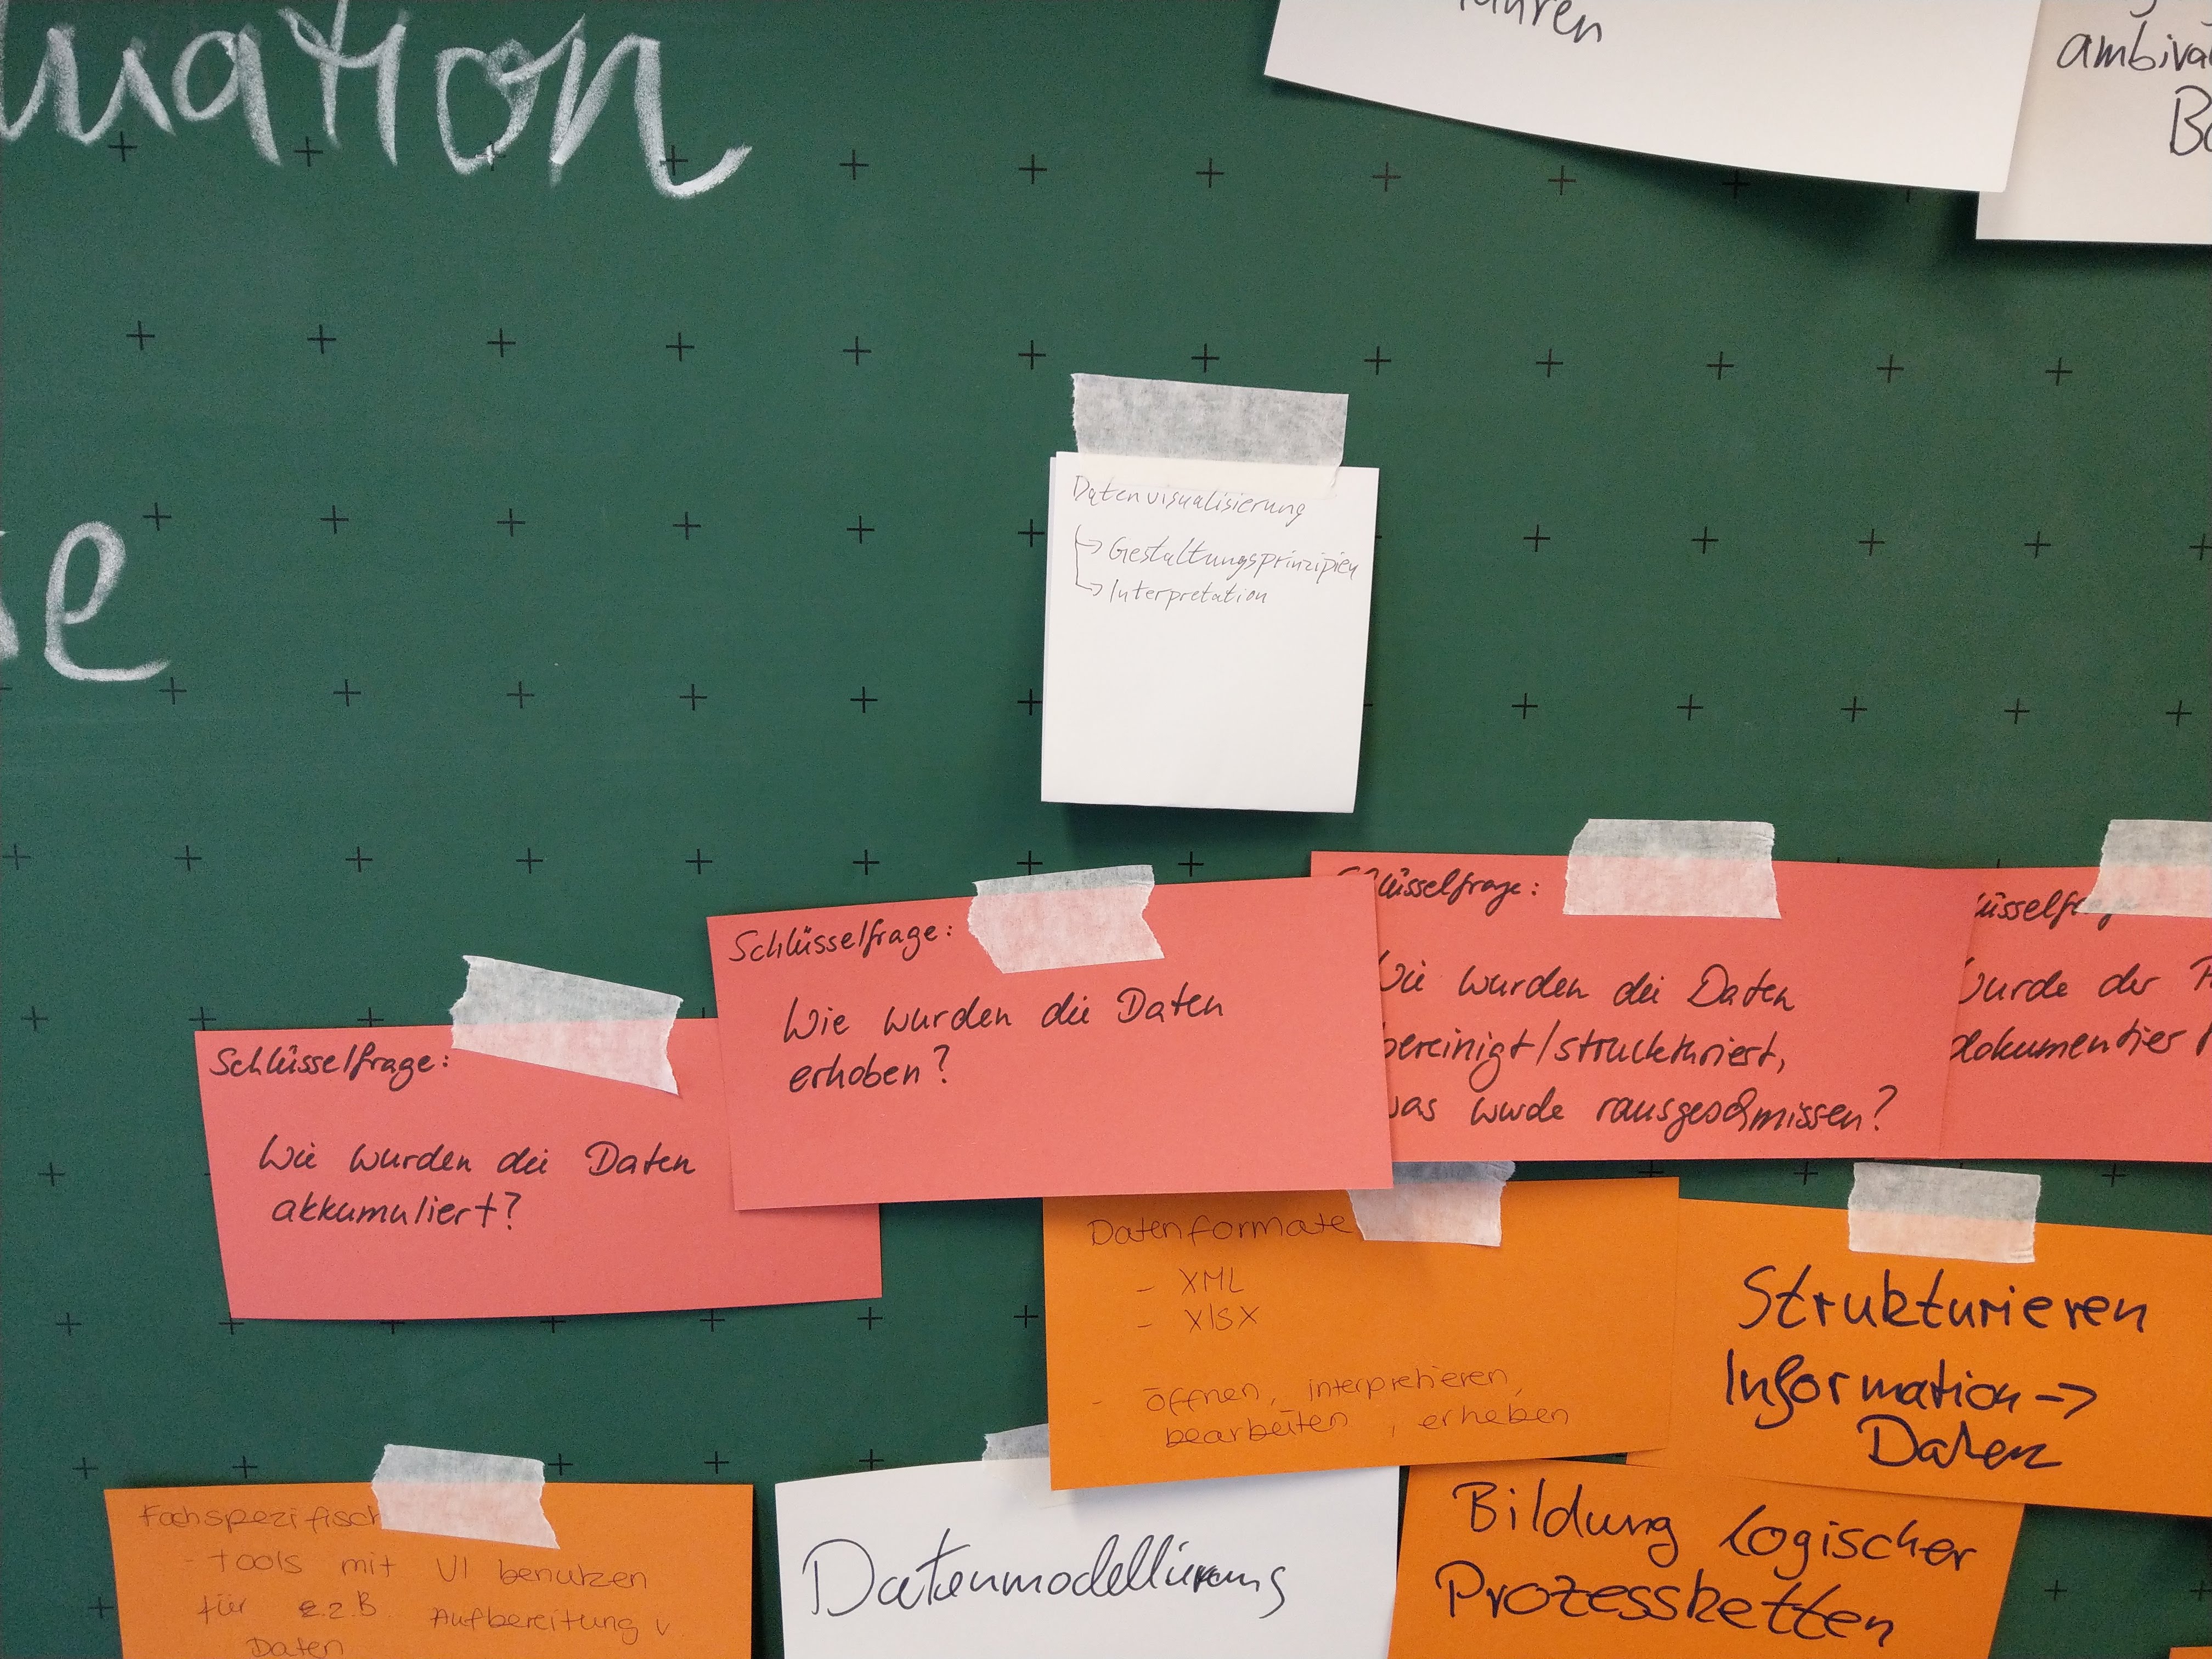 ambiva
Datenvisualisierung
-> Gestaltungsprinzipien
-> Interpretation
Schlüsselfrage:
Wie wurden die Daten
akkumuliert?
Schlüsselfrage:
Wie wurden die Daten
erhoben?
lüsselfrage:
Wie wurden die Daten
bereinigt/strukturiert,
was wurde rausgeschmissen?
üsselfrage
Wurde der
dokumentier
Datenformate
- XML
- XlSX
- öffnen, interpretieren,
bearbeiten, erheben
Strukturieren
Information ->
Daten
Fachspezifisch
- tools mit UI benutzen
für z.B. Aufbereitung v
Daten
Datenmodellierung
Bildung logischer
Prozessketten